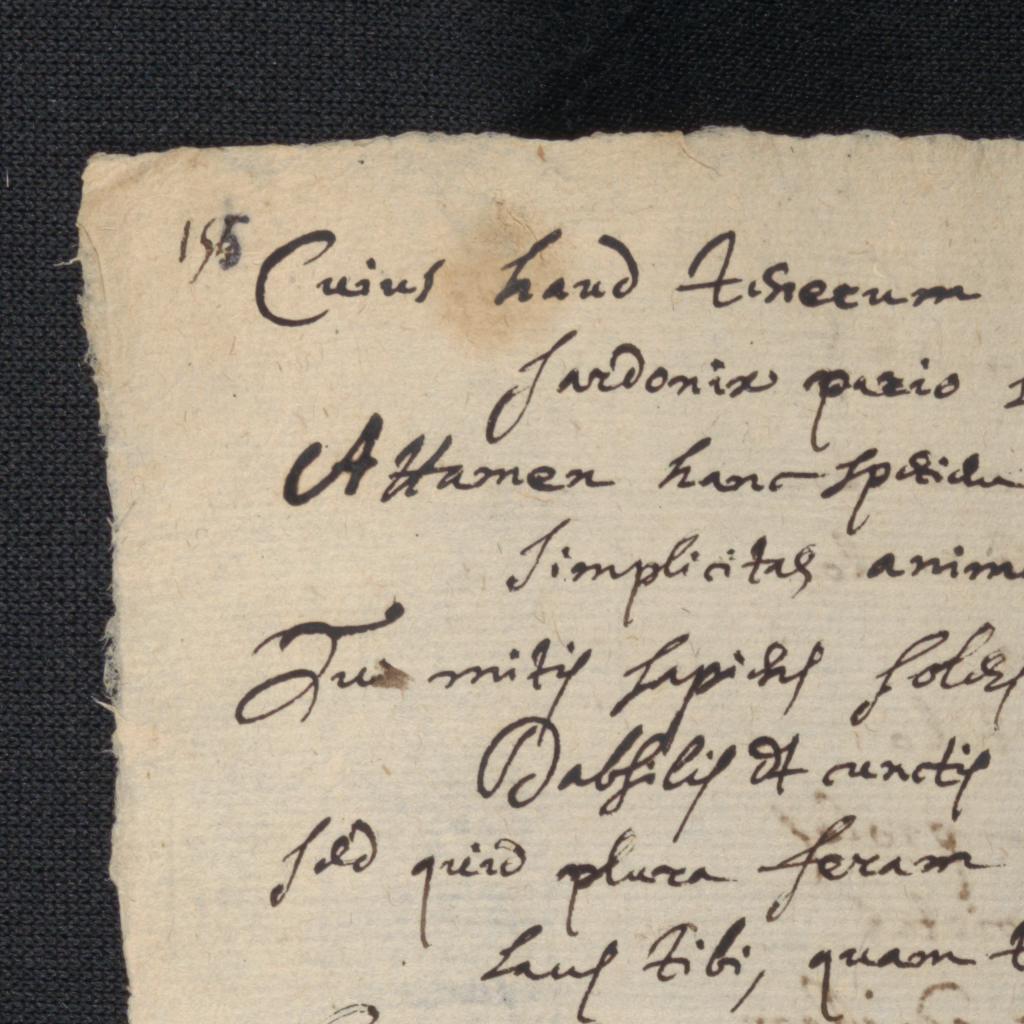 155
Cuius haud tenerum
sardonix pario
Attamen hanc
simplicitas anim
Tu mitis sapiens soles
Dabsilis et cunctis
sed quid plura feram
Laus tibi, quam t